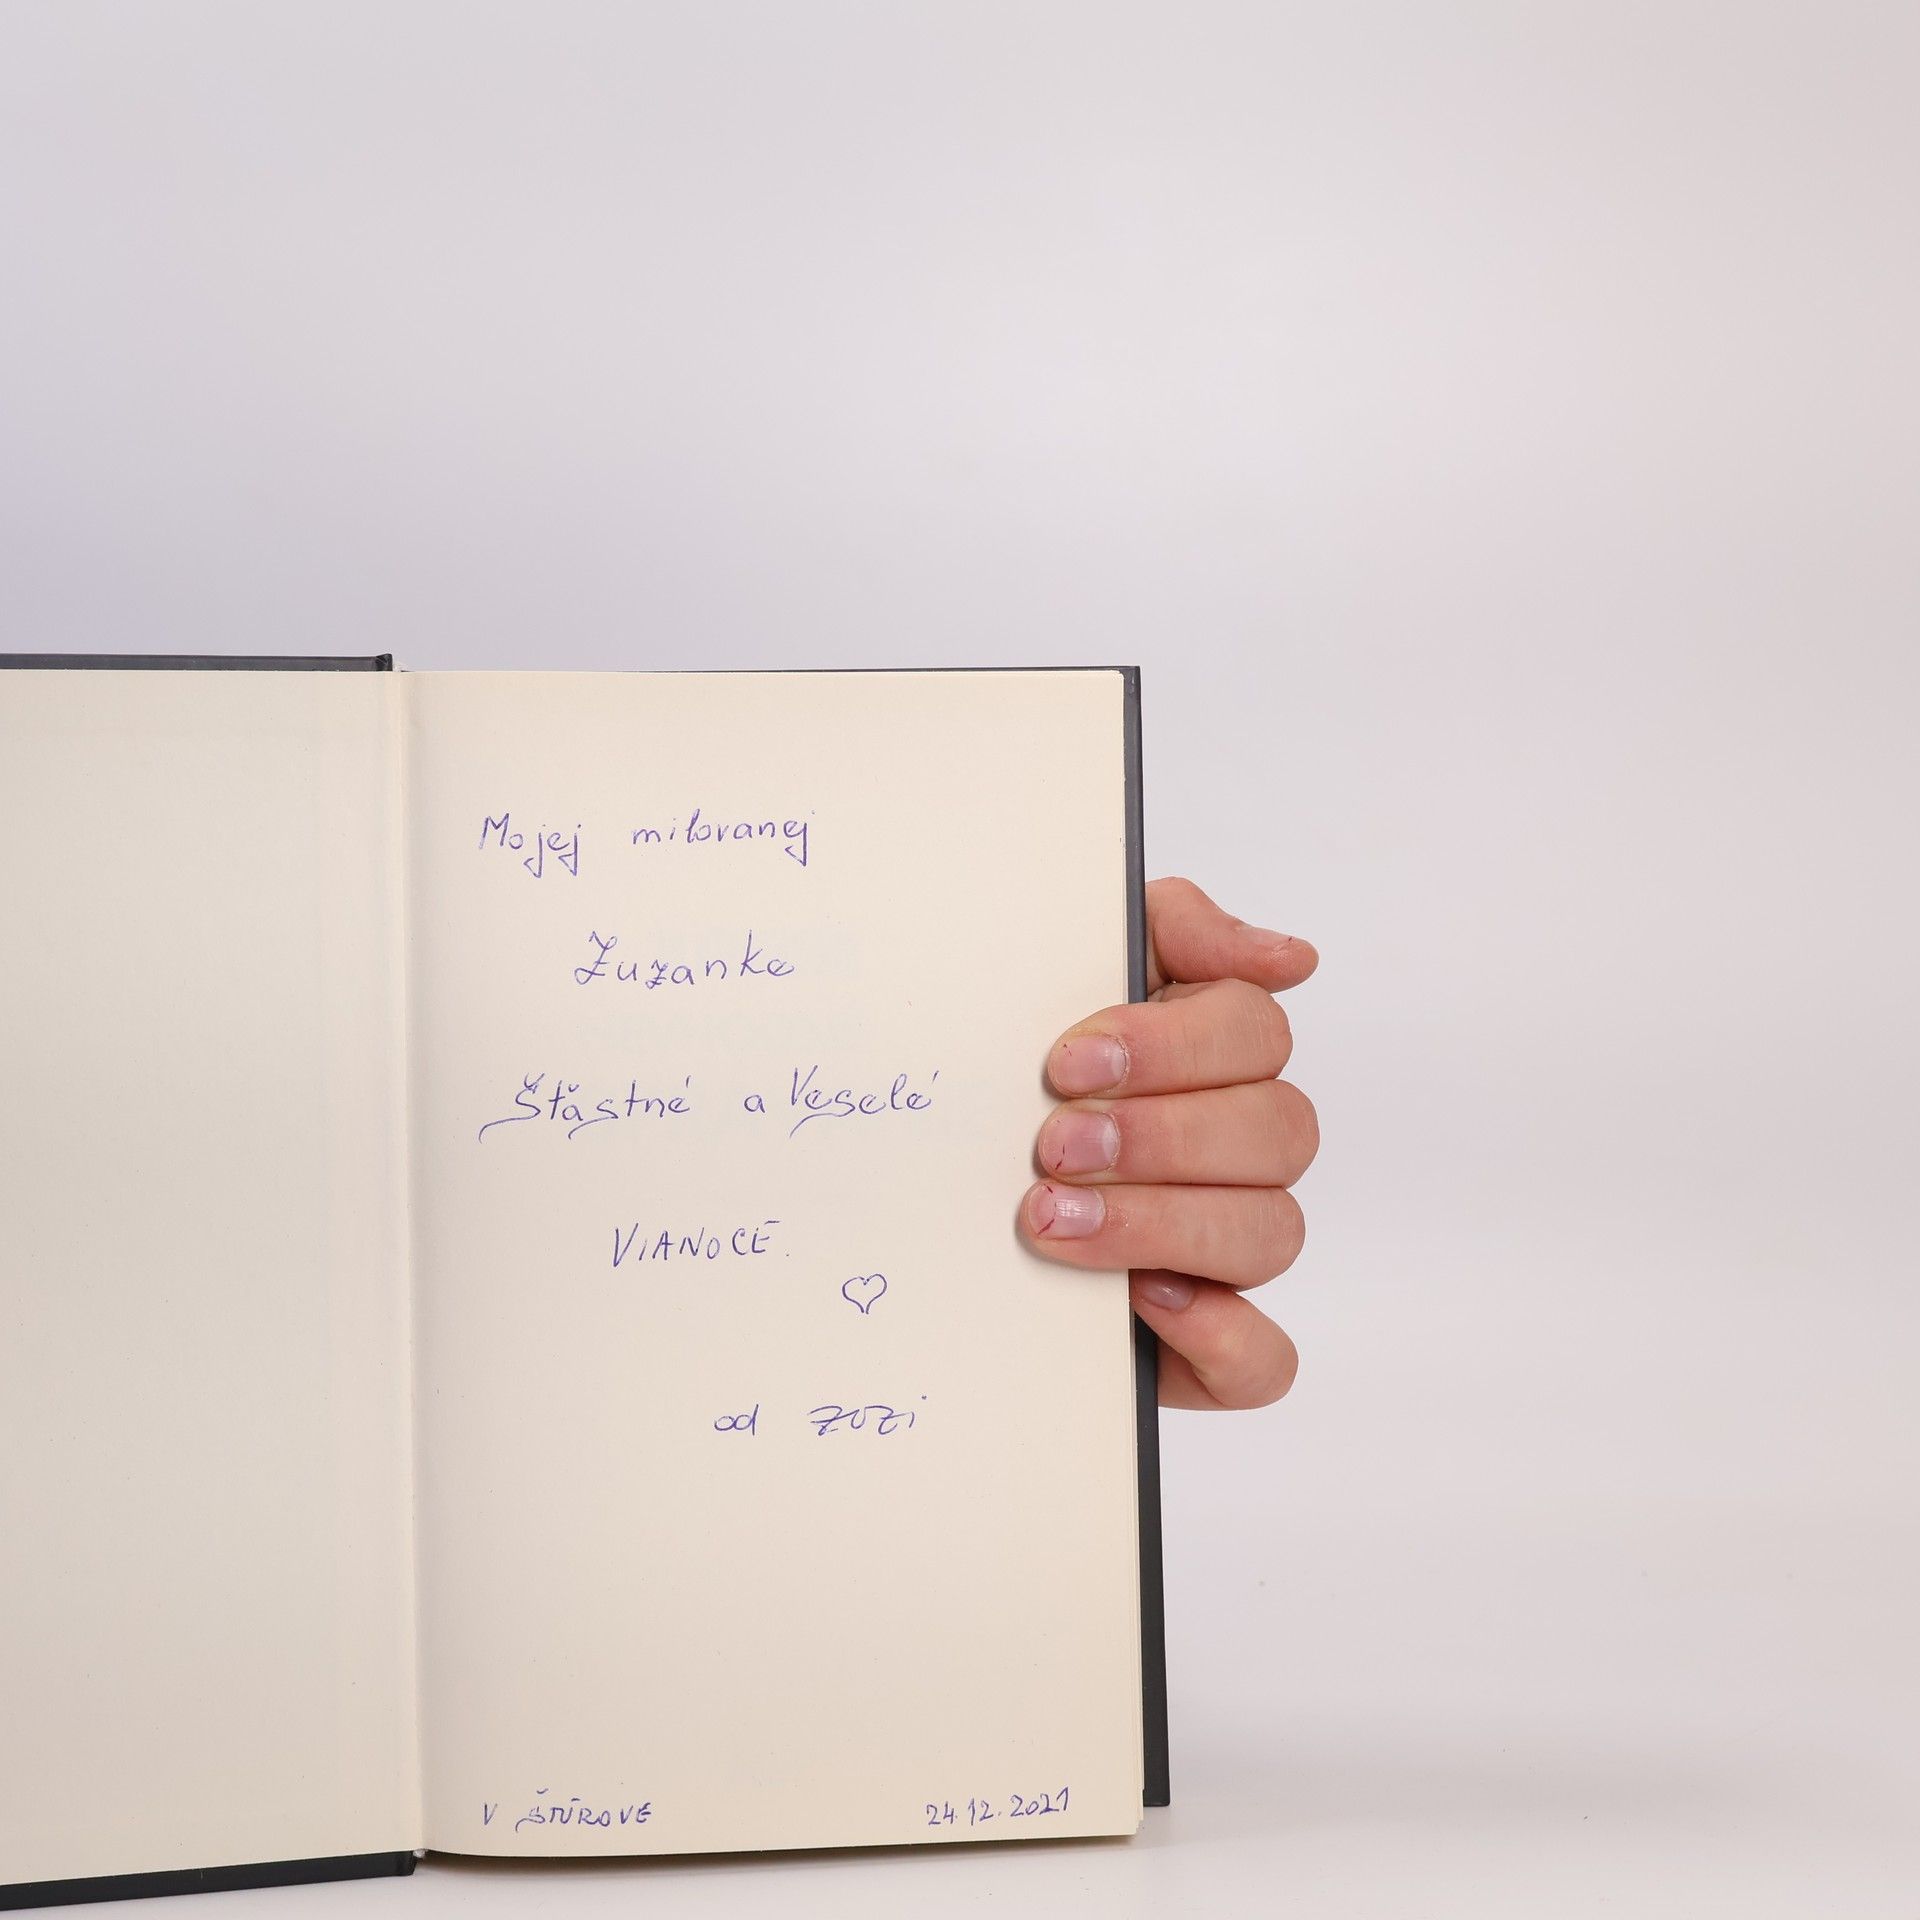 Mojej milovanej
Zuzanke
Šťastné a Veselé
VIANOCE.
od ZUZI
V ŠTÚROVE 24.12.2021